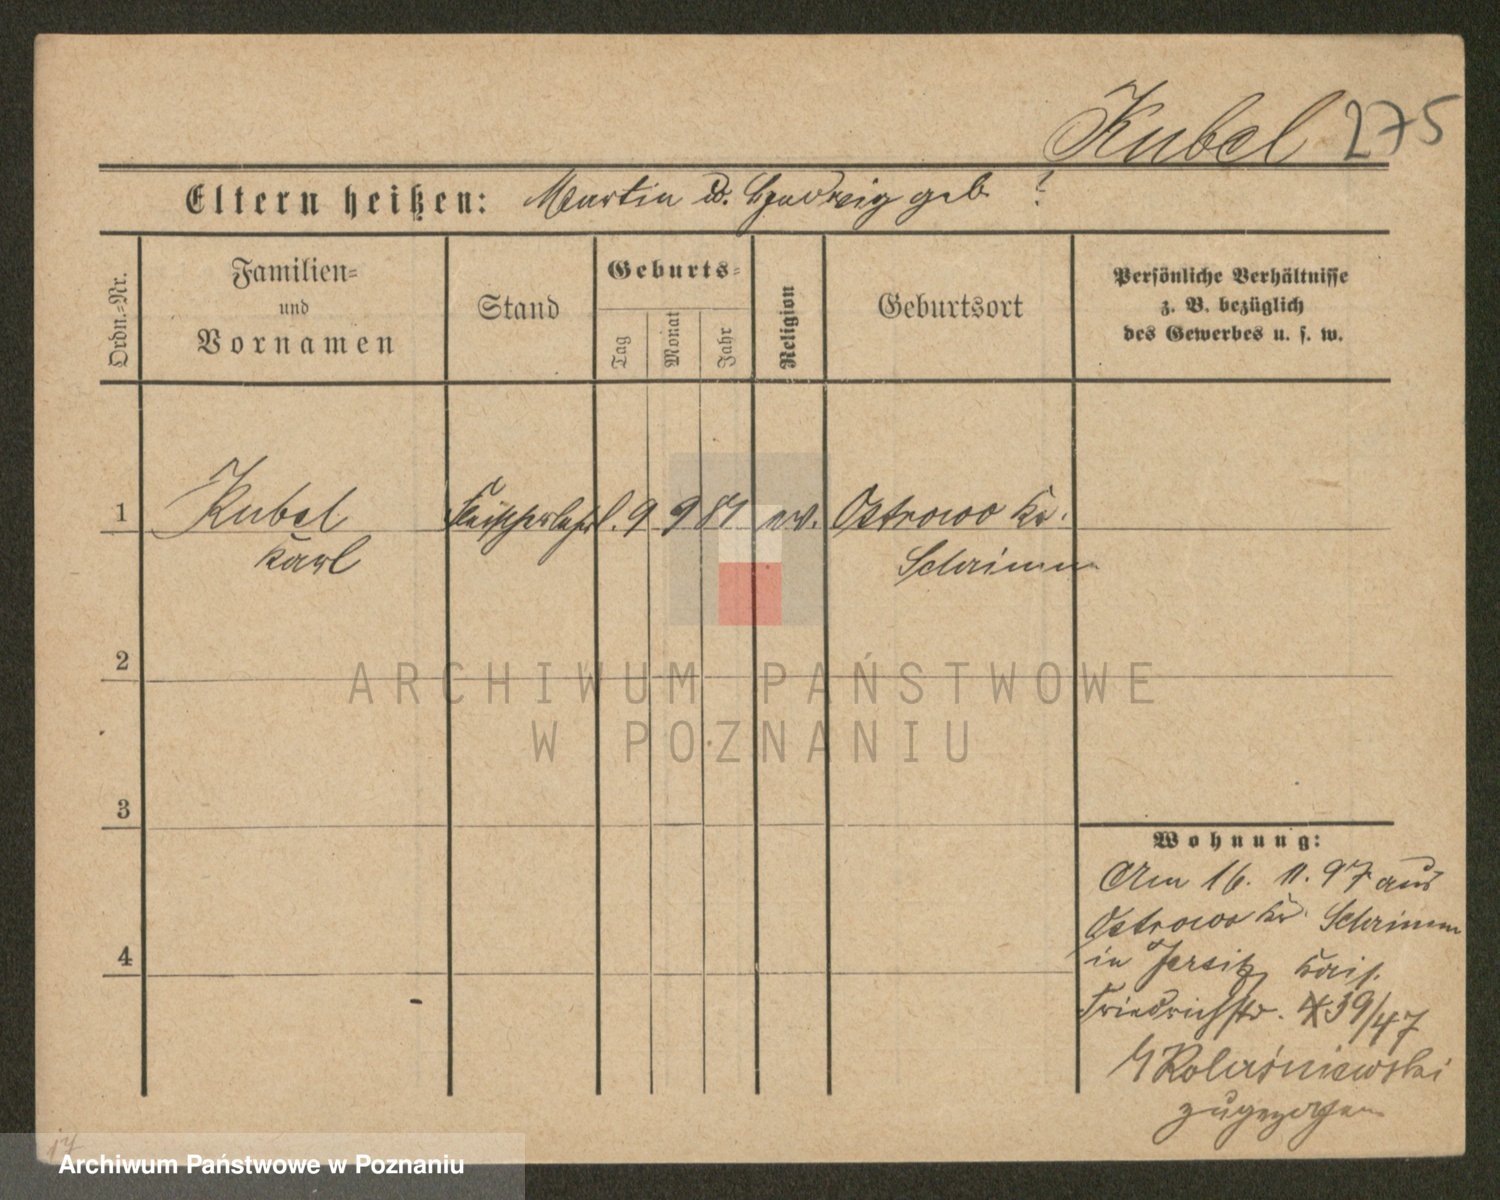 Kubel 275
Eltern heißen: Martin u. Hedwig geb ?
Ordn.=Nr.
Familien=
und
Vornamen
Stand
Geburts=
Tag
Monat
Jahr
Religion
Geburtsort
Persönliche Verhältnisse
z. B. bezüglich
des Gewerbes u. s. w.
1
Kubel
Karl
Fleischerlehrl.
9
9
81
ev.
Ostrowo Kr.
Schrimm
2
3
4
ARCHIWUM PAŃSTWOWE
W POZNANIU
Wohnung:
Am 16. 11. 97 aus
Ostrowo Kr. Schrimm
in Jersitz Kais.
Friedrichstr. 39/47
Kolasniewski
zugezogen
17
Archiwum Państwowe w Poznaniu